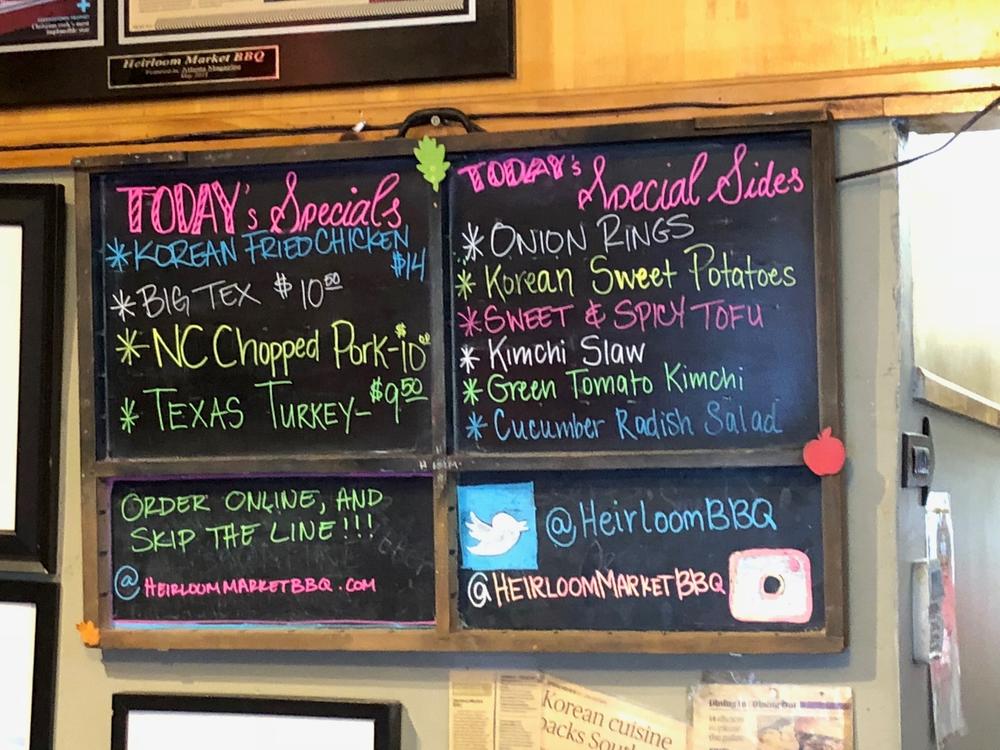 Heirloom Market BBQ
TODAY's Specials
* KOREAN FRIED CHICKEN
$14
* BIG TEX $10 50
* NC Chopped Pork - $10 00
* TEXAS TURKEY - $9 50
TODAY's Special Sides
* ONION RINGS
* Korean Sweet Potatoes
* SWEET & SPICY TOFU
* Kimchi Slaw
* Green Tomato Kimchi
* Cucumber Radish Salad
ORDER ONLINE, AND
SKIP THE LINE!!!
@HEIRLOOMMARKETBBQ.COM
@HeirloomBBQ
@HEIRLOOMMARKETBBQ
Korean cuisine
packs